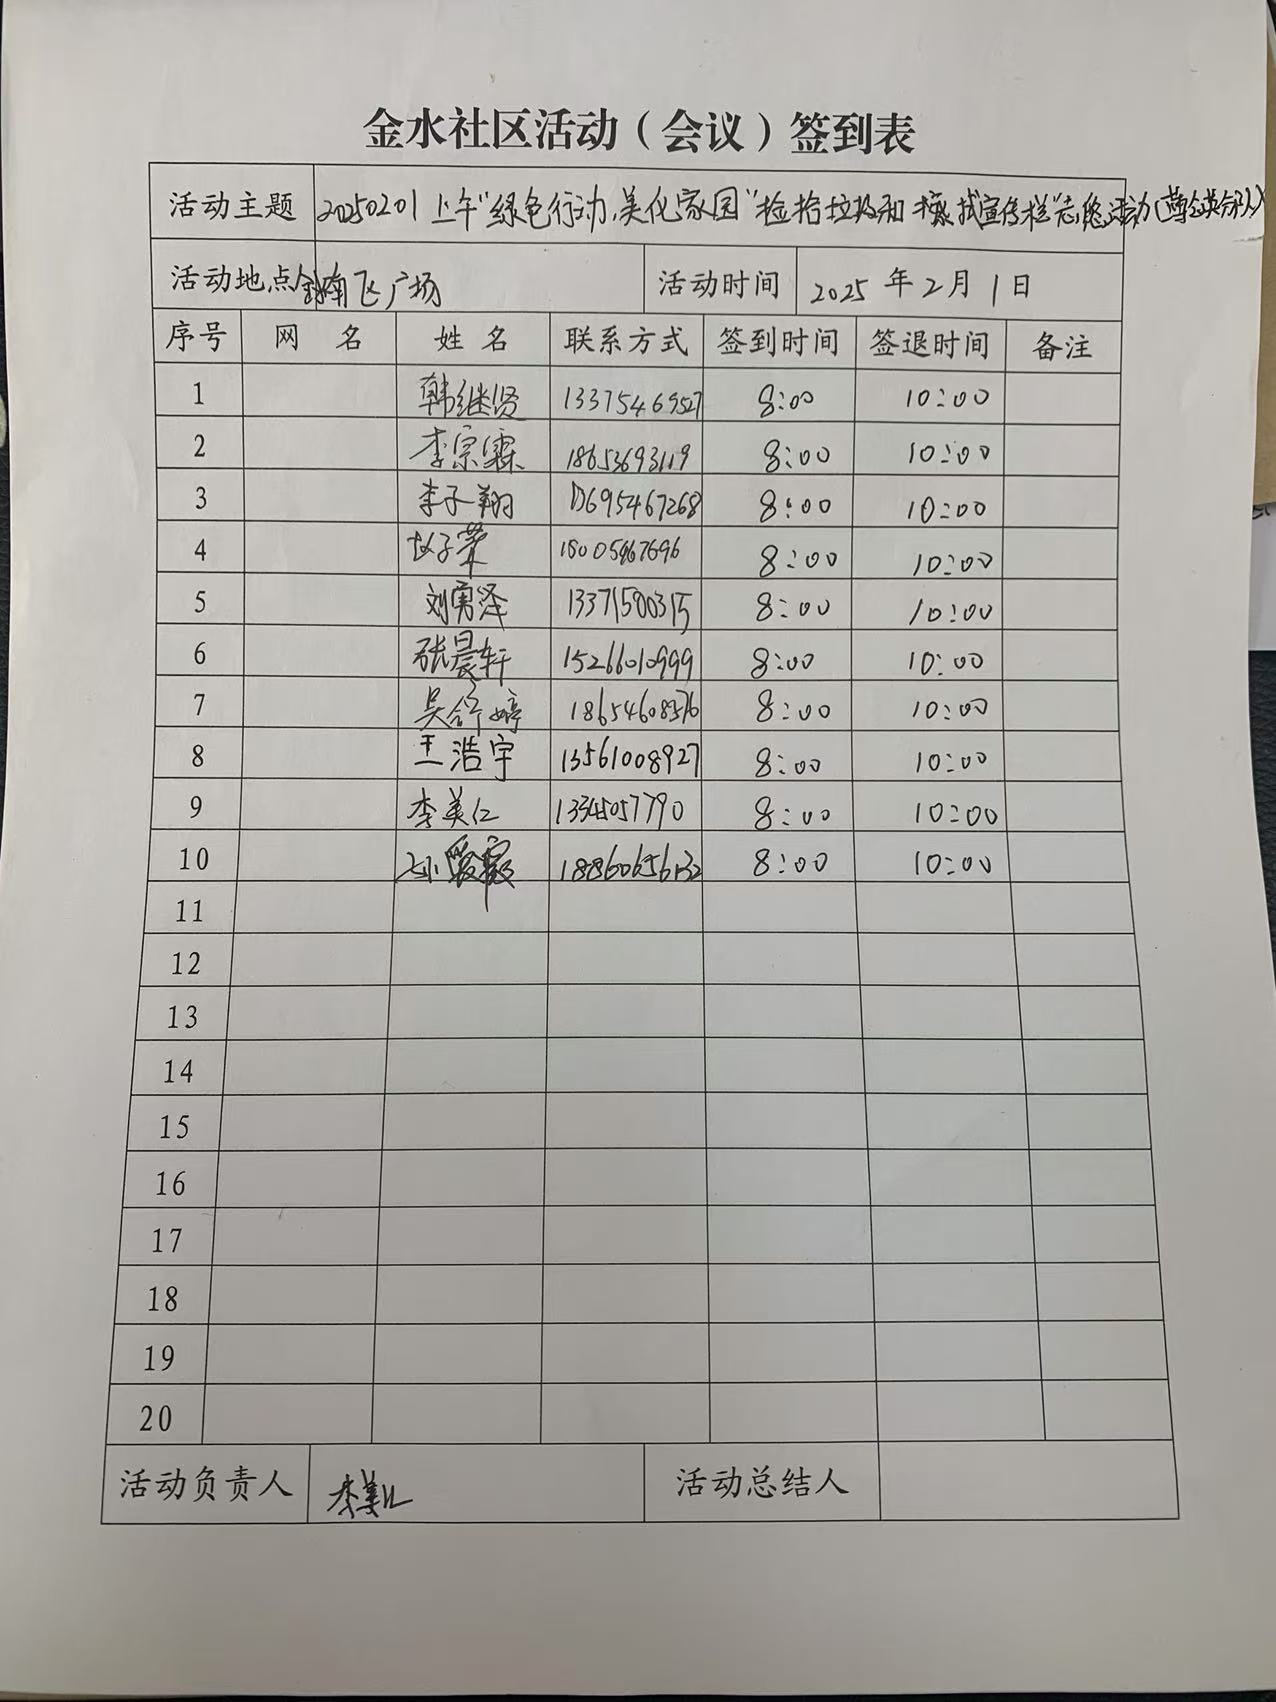 金水社区活动（会议）签到表
活动主题 20250201上午"绿色行动,美化家园"捡拾垃圾和擦拭宣传栏"志愿活动
活动地点 南飞广场 活动时间 2025年2月1日
序号 网名 姓名 联系方式 签到时间 签退时间 备注
1 韩继贤 13375469527 8:00 10:00
2 李宗霖 18653693119 8:00 10:00
3 李子翔 13695467268 8:00 10:00
4 8:00 10:00
5 刘勇泽 13371580315 8:00 10:00
6 张晨轩 15266010999 8:00 10:00
7 吴舒婷 18654608576 8:00 10:00
8 王浩宇 13561008927 8:00 10:00
9 李美仁 13345057790 8:00 10:00
10 18860656132 8:00 10:00
11
12
13
14
15
16
17
18
19
20
活动负责人 李美仁 活动总结人